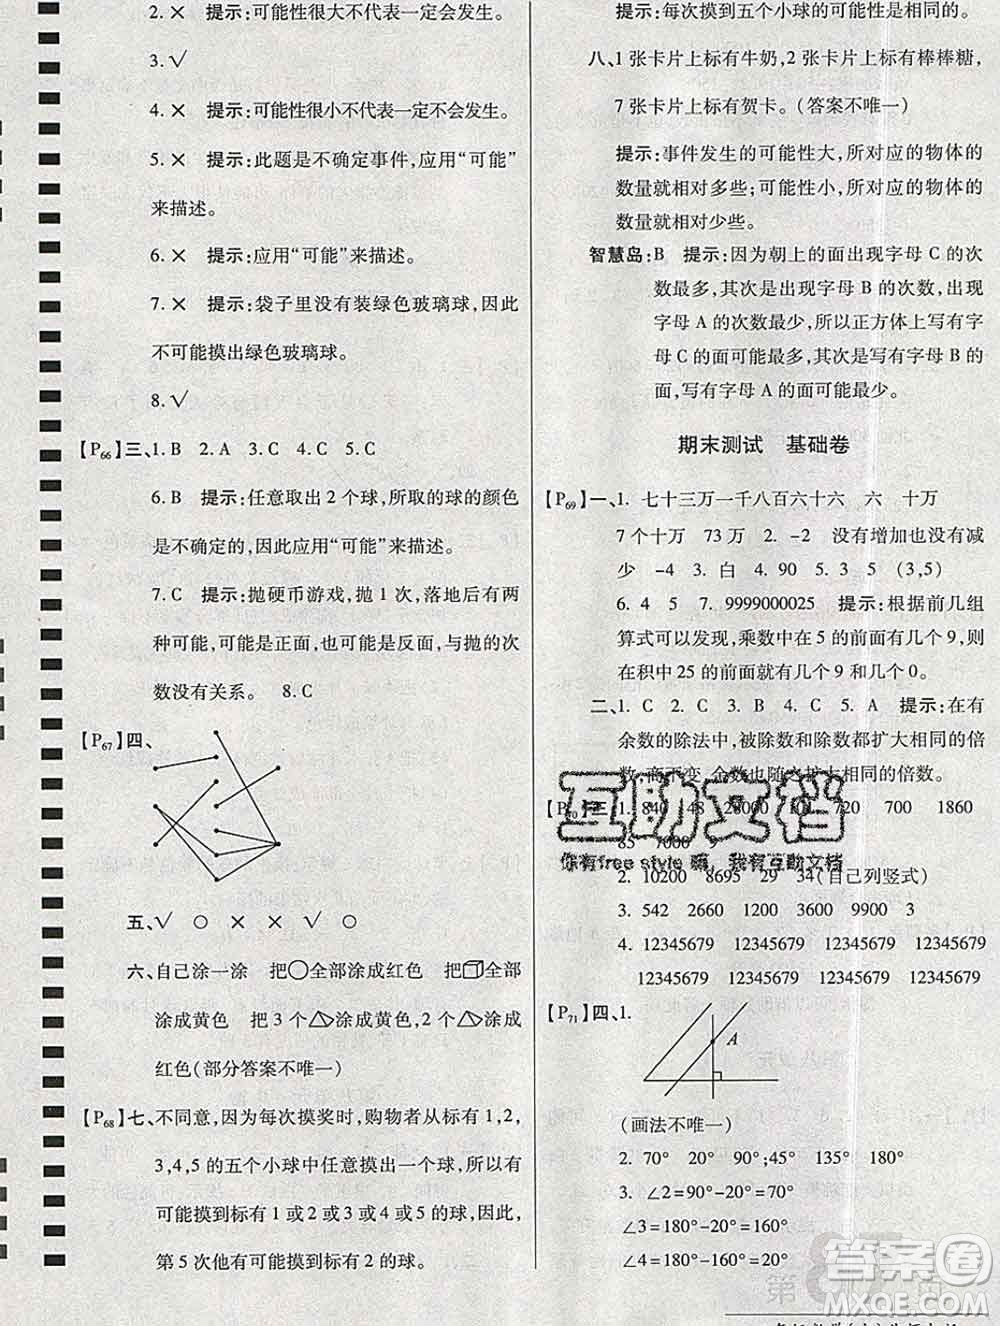 2. × 提示:可能性很大不代表一定会发生。
3. √
4. × 提示:可能性很小不代表一定不会发生。
5. × 提示:此题是不确定事件,应用“可能”
来描述。
6. × 提示:应用“可能”来描述。
7. × 提示:袋子里没有装绿色玻璃球,因此
不可能摸出绿色玻璃球。
8. √
【P66】三、1. B 2. A 3. C 4. C 5. C
6. B 提示:任意取出 2 个球,所取的球的颜色
是不确定的,因此应用“可能”来描述。
7. C 提示:抛硬币游戏,抛 1 次,落地后有两
种可能,可能是正面,也可能是反面,与抛的次
数没有关系。 8. C
【P67】四、
五、√ ○ × × √ ○
六、自己涂一涂 把○全部涂成红色 把 全部
涂成黄色 把 3 个 涂成黄色,2 个 涂成
红色(部分答案不唯一)
【P68】七、不同意,因为每次摸奖时,购物者从标有 1,2,
3,4,5 的五个小球中任意摸出一个球,所以有
可能摸到标有 1 或 2 或 3 或 4 或 5 的球,因此,
第 5 次他有可能摸到标有 2 的球。
提示:每次摸到五个小球的可能性是相同的。
八、1 张卡片上标有牛奶,2 张卡片上标有棒棒糖,
7 张卡片上标有贺卡。(答案不唯一)
提示:事件发生的可能性大,所对应的物体的
数量就相对多些;可能性小,所对应的物体的
数量就相对少些。
智慧岛:B 提示:因为朝上的面出现字母 C 的次
数最多,其次是出现字母 B 的次数,出现
字母 A 的次数最少,所以正方体上写有字
母 C 的面可能最多,其次是写有字母 B 的
面,写有字母 A 的面可能最少。
期末测试 基础卷
【P69】一、1. 七十三万一千八百六十六 六 十万
7 个十万 73 万 2. -2 没有增加也没有减
少 -4 3. 白 4. 90 5. 3 5 (3,5)
6. 4 5 7. 9999000025 提示:根据前几组
算式可以发现,乘数中在 5 的前面有几个 9,则
在积中 25 的前面就有几个 9 和几个 0。
二、1. C 2. D 3. B 4. C 5. A 提示:在有
余数的除法中,被除数和除数都扩大相同的倍
数,商不变,余数也随之扩大相同的倍数。
【P70】三、1. 840 48 28000 720 700 1860
85 7000 9
互助文档
你有free style 嘛，我有互助文档
2. 10200 8695 29 34(自己列竖式)
3. 542 2660 1200 3200 9900 3
4. 12345679 12345679 12345679 12345679
12345679 12345679 12345679
【P71】四、1.
A
(画法不唯一)
2. 70° 20° 90° 45° 135° 180°
3. ∠2=90°-20°=70°
∠3=180°-20°=160°
∠4=180°-160°=20°
答案圈
MXQE.COM